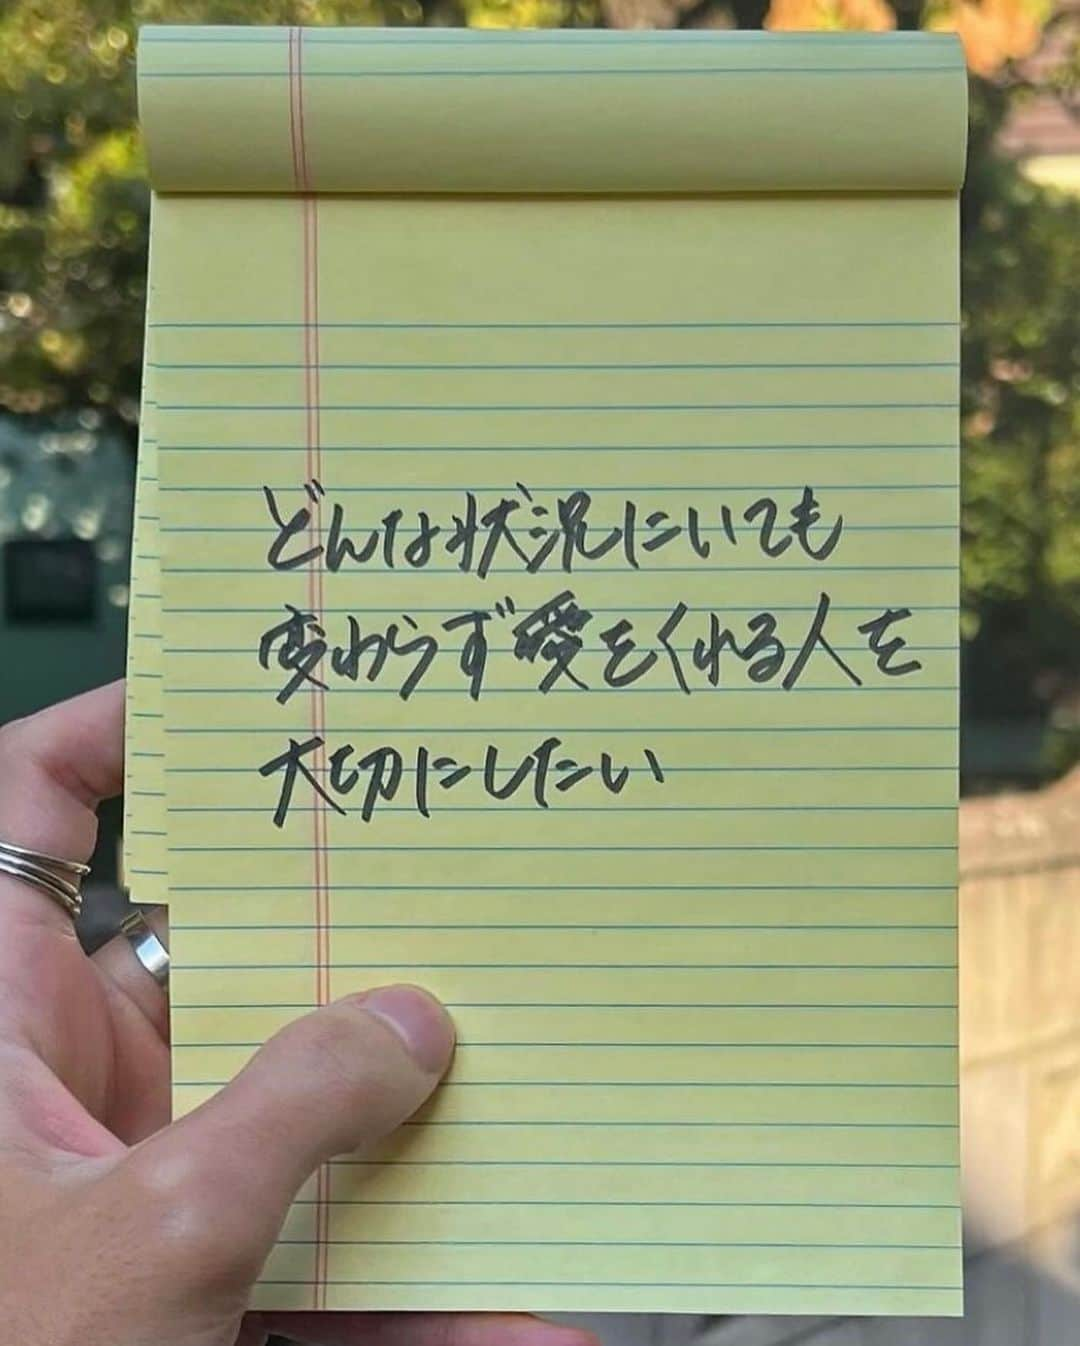 どんな状況にいても
変わらず愛をくれる人を
大切にしたい